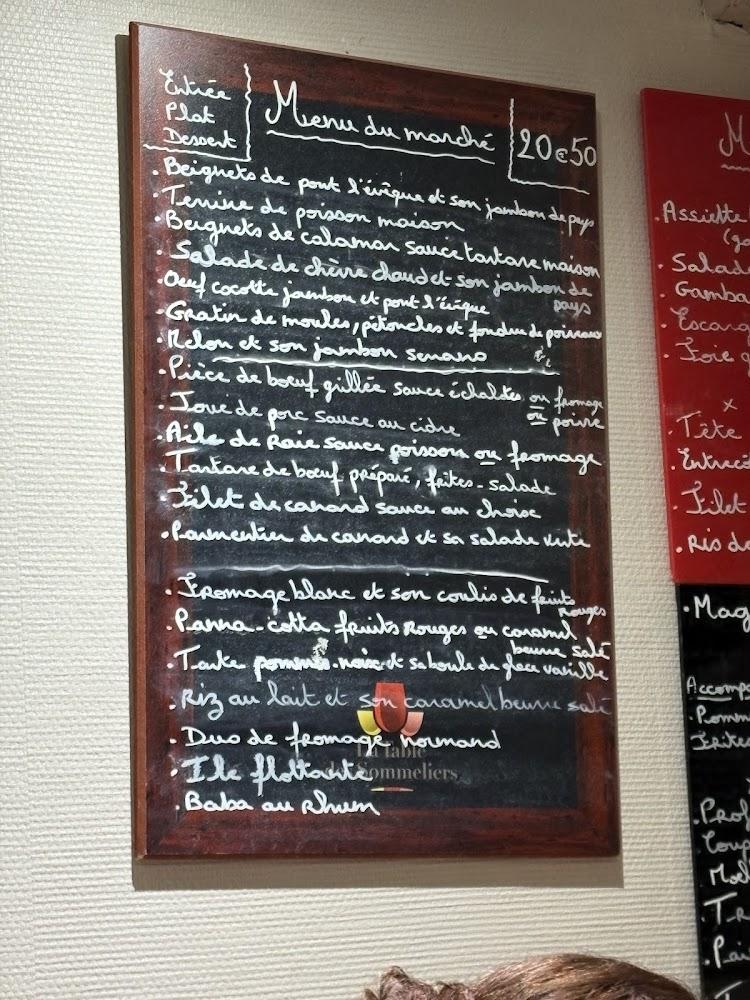 Entrée
Plat
Dessert
Menu du marché
20€50
. Beignets de pont l'évêque et son jambon de pays
. Terrine de poisson maison
. Beignets de calamar sauce tartare maison
. Salade de chèvre chaud et son jambon de
pays
. Oeuf cocotte jambon et pont l'évêque
. Gratin de moules, pétoncles et fondue de poireaux
. Melon et son jambon serrano
. Pièce de boeuf grillée sauce échalotes ou fromage
ou poivre
. Joue de porc sauce au cidre
. Aile de Raie sauce poisson ou fromage
. Tartare de boeuf préparé, frites - salade
. Filet de canard sauce au choix
. Parmentier de canard et sa salade verte
. Fromage blanc et son coulis de fruits
rouges
. Panna-cotta fruits Rouges ou caramel
beurre salé
. Tarte pommes-noix et sa boule de glace vanille
. Riz au lait et son caramel beurre salé
. Duo de fromage normand
. Ile flottante
. Baba au Rhum
La Table
des Sommeliers
M
. Assiette
(ga
. Salad
. Gamba
. Escarg
. Foie g
x
. Tête
. Entrecô
. Filet
. Ris de
. Mag
Accomp
. Pomm
Frites
. Prof
Coup
Moel
. Tr
. Pai